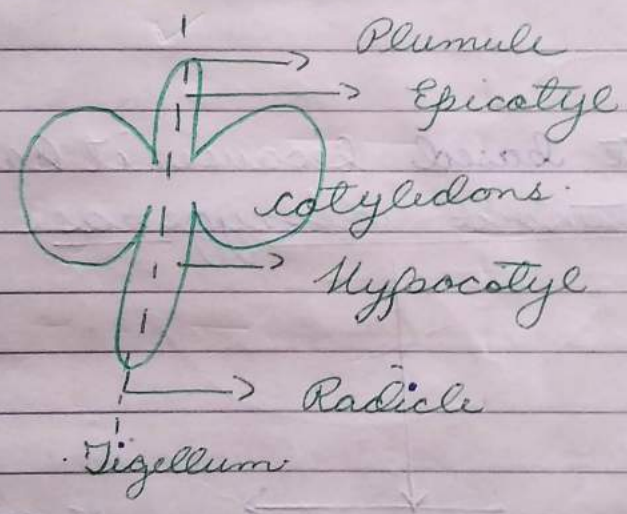 Plumule
Epicotyl
cotyledons.
Hypocotyl
Radicle
Tigellum